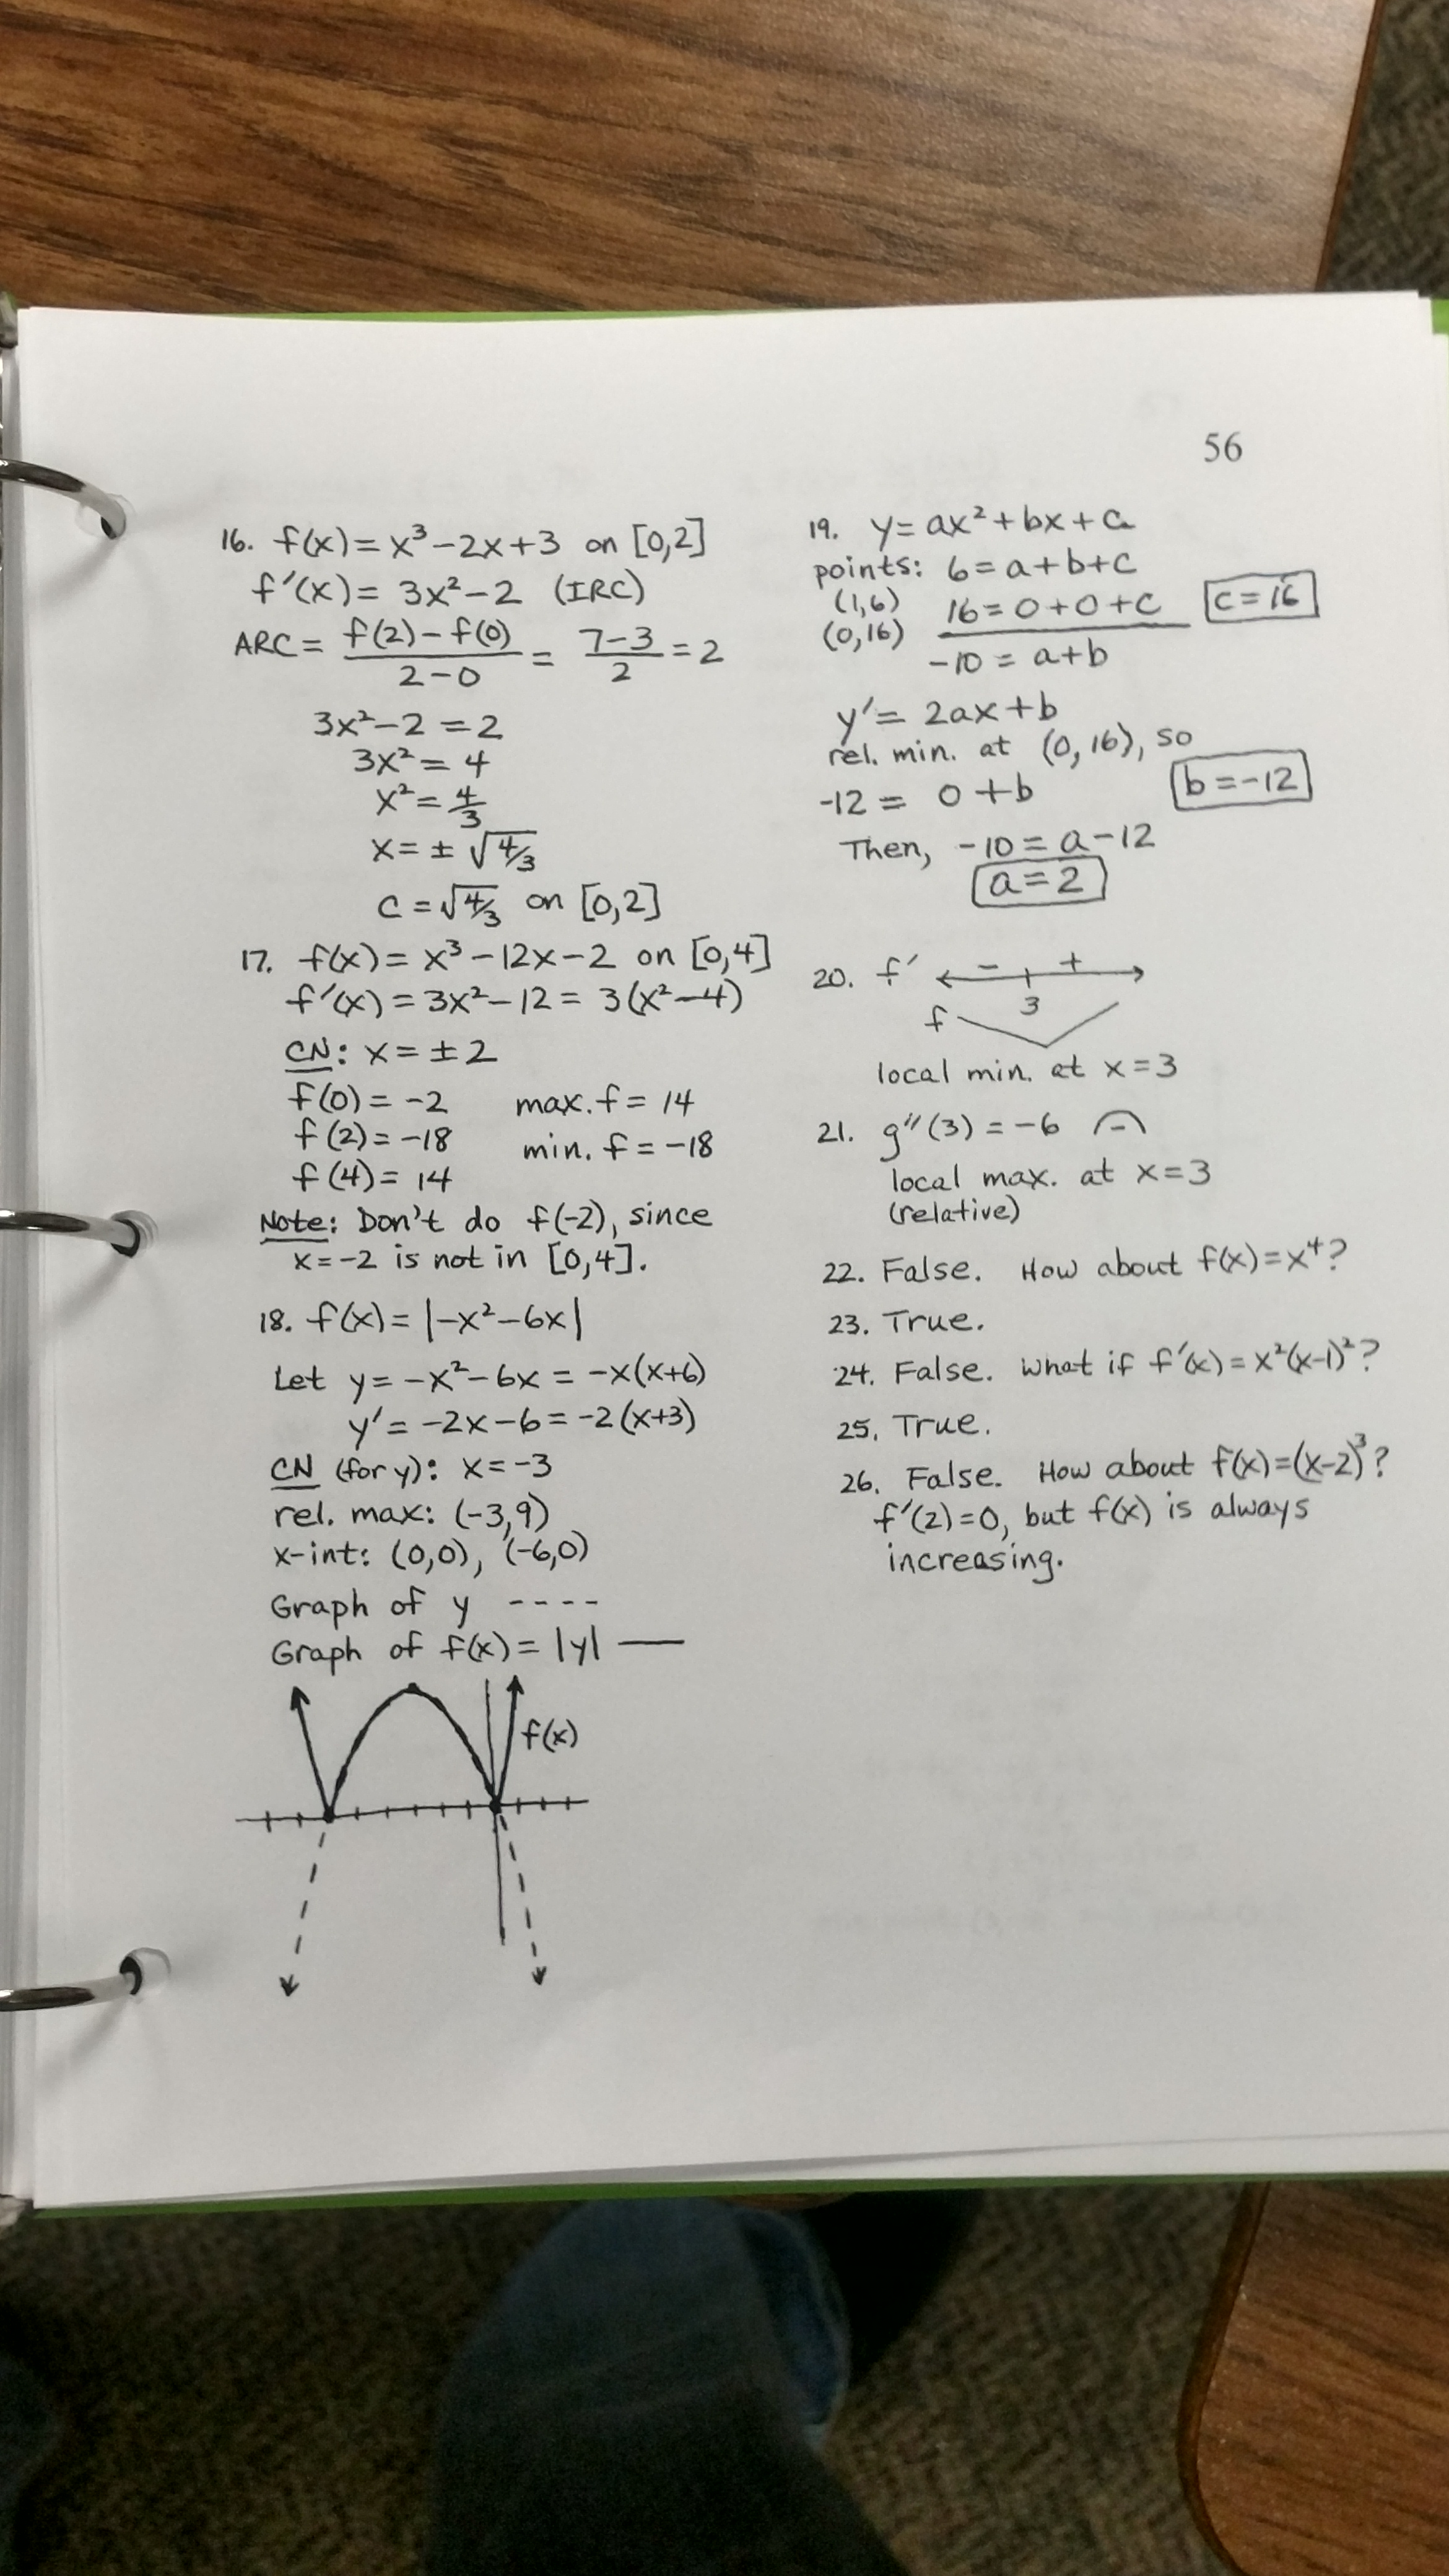 56
16. f(x) = x³ – 2x + 3 on [0,2]
f'(x) = 3x² – 2 (IRC)
ARC = f(2) – f(0) / 2 – 0 = 7 – 3 / 2 = 2
3x² – 2 = 2
3x² = 4
x² = 4/3
x = ± √4/3
c = √4/3 on [0,2]
17. f(x) = x³ – 12x – 2 on [0,4]
f'(x) = 3x² – 12 = 3(x² – 4)
CN: x = ± 2
f(0) = –2 max. f = 14
f(2) = –18 min. f = –18
f(4) = 14
Note: Don't do f(-2), since
x = –2 is not in [0,4].
18. f(x) = |–x² – 6x|
Let y = –x² – 6x = –x(x+6)
y' = –2x – 6 = –2(x+3)
CN (for y): x = –3
rel. max: (–3,9)
x-int: (0,0), (–6,0)
Graph of y ----
Graph of f(x) = |y| —
f(x)
19. y = ax² + bx + c
points: 6 = a + b + c
(1,6) 16 = 0 + 0 + c c = 16
(0,16)
–10 = a + b
y' = 2ax + b
rel. min. at (0,16), so
-12 = 0 + b b = –12
Then, –10 = a – 12
a = 2
20. f' – +
3
f
local min. at x = 3
21. g"(3) = –6 –
local max. at x = 3
(relative)
22. False. How about f(x) = x⁴?
23. True.
24. False. What if f'(x) = x²(x–1)²?
25. True.
26. False. How about f(x) = (x–2)³?
f'(2) = 0, but f(x) is always
increasing.